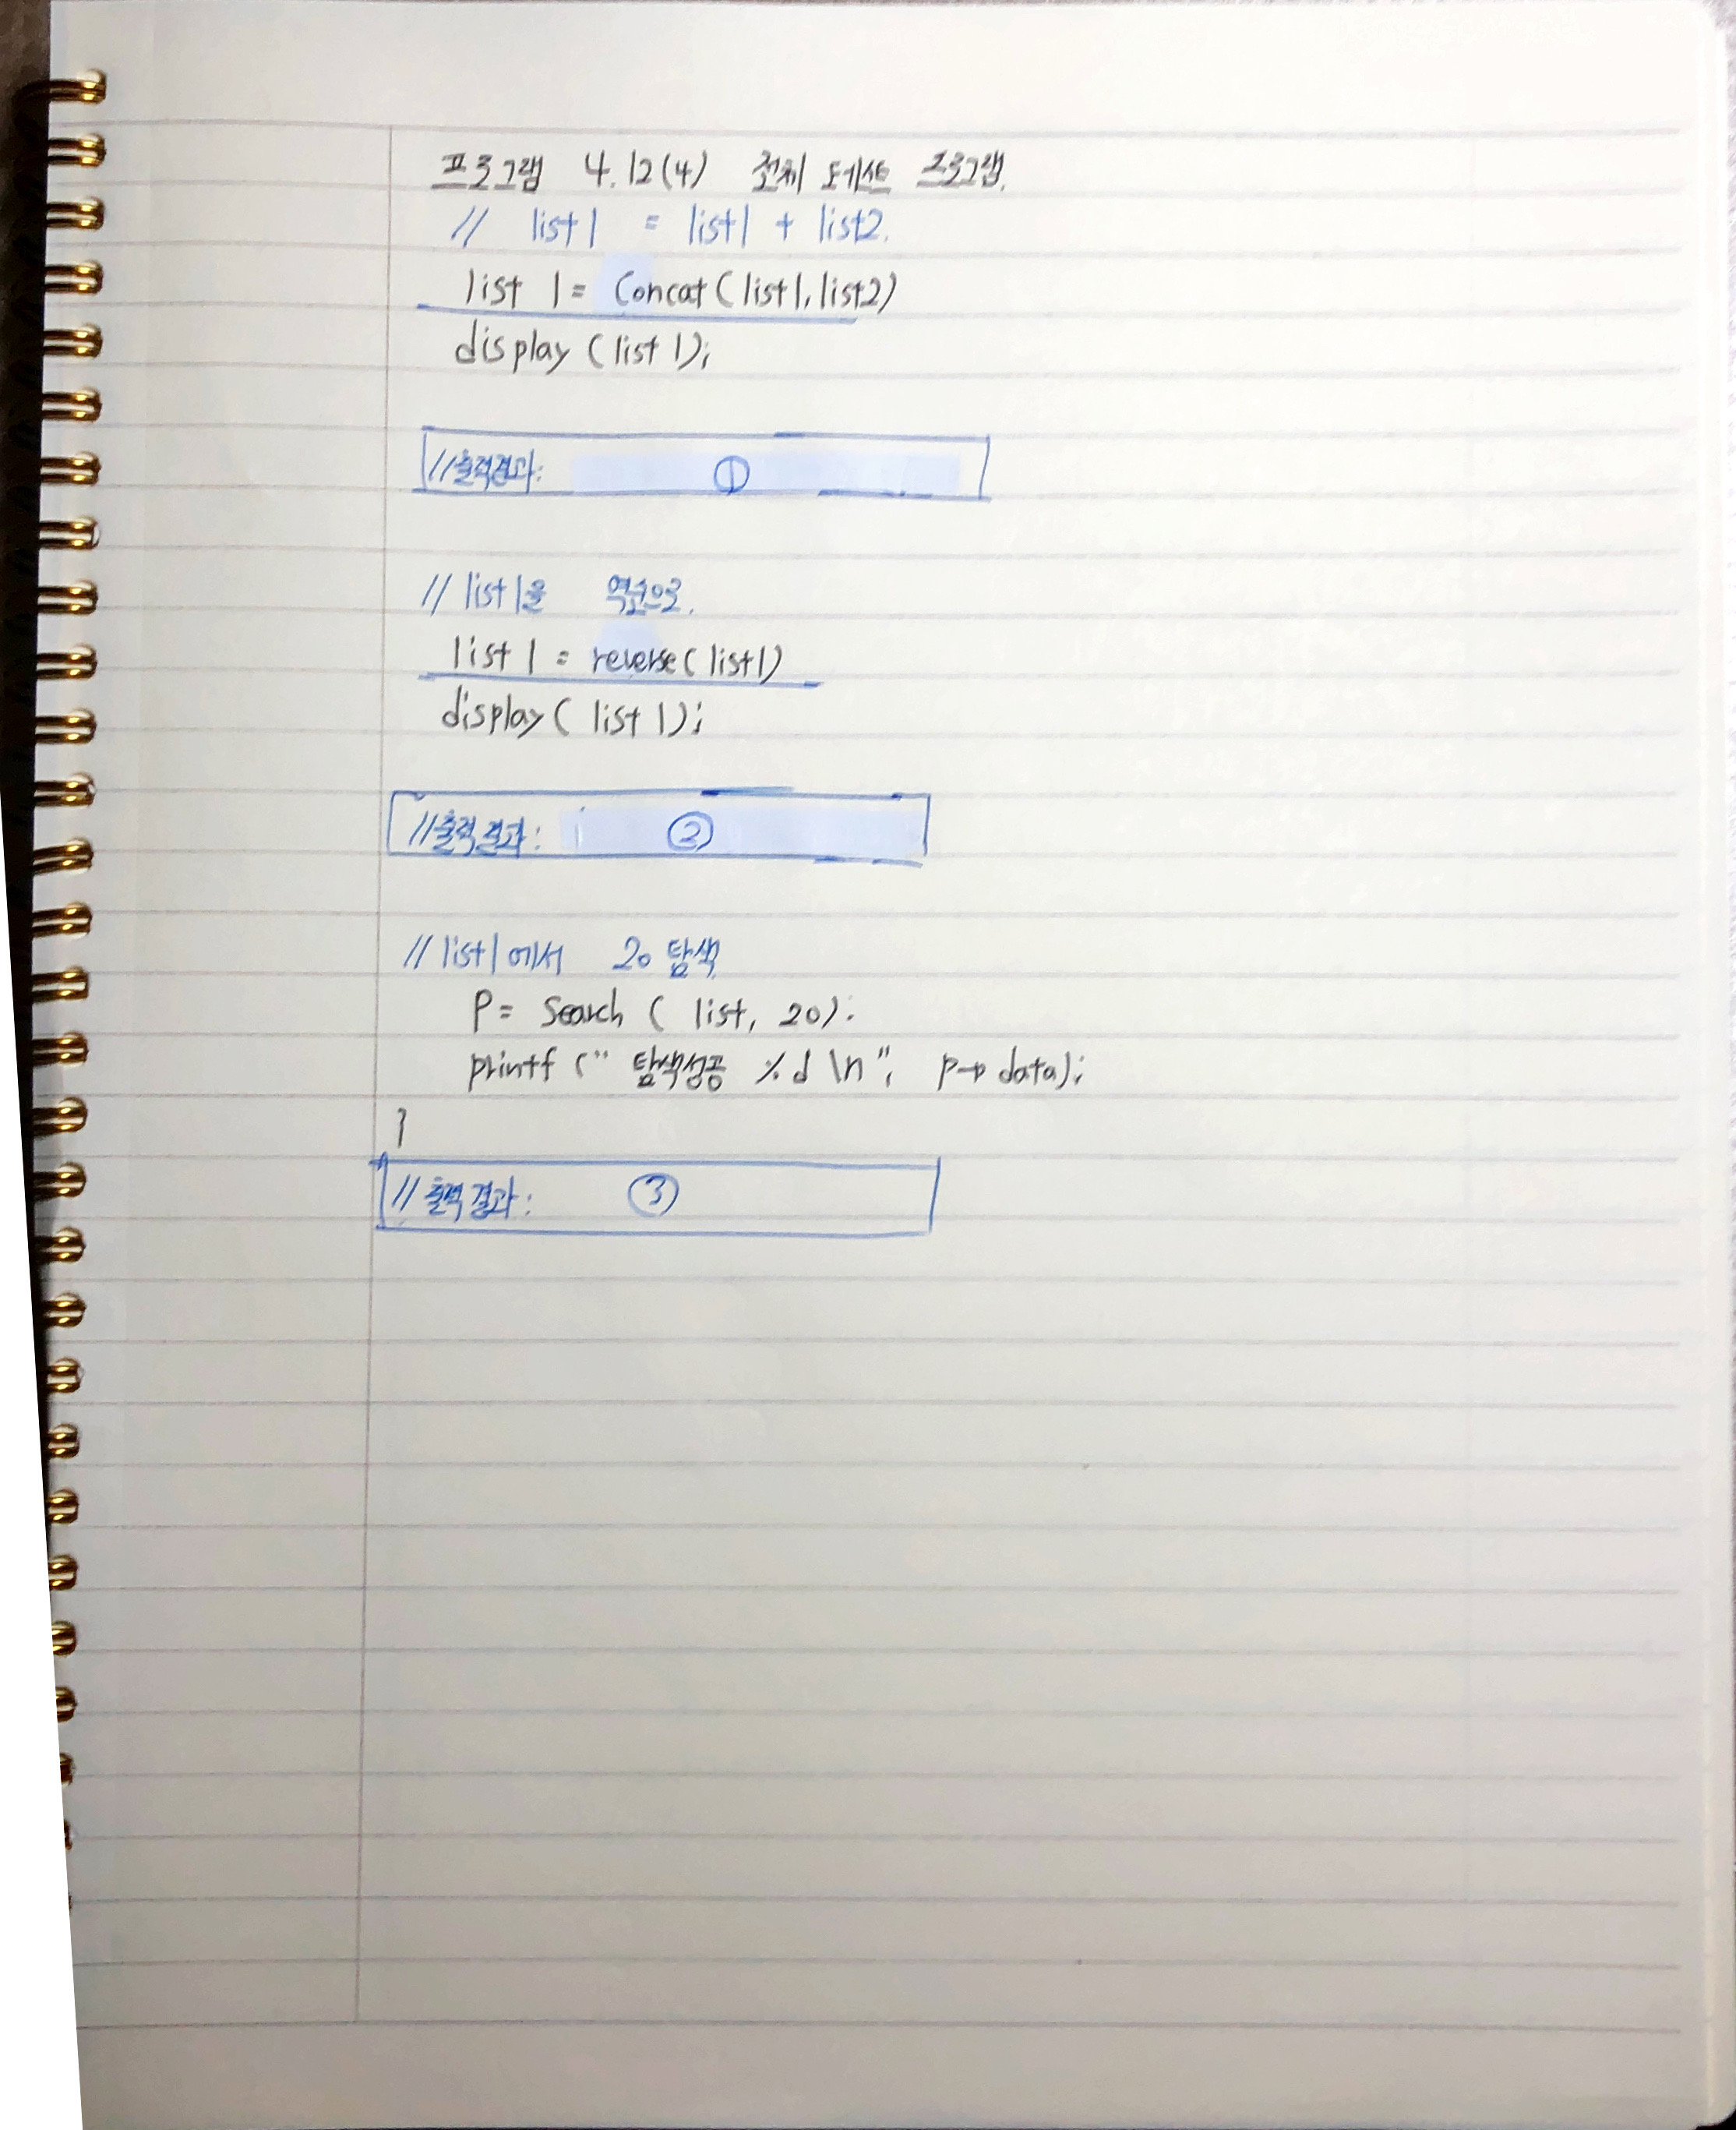 프로그램 4.12(4) 전체 테스트 프로그램.
// list1 = list1 + list2.
list 1= Concat(list1, list2)
display (list 1);
//출력결과: ①
// list1을 역순으로.
list 1 = reverse(list1)
display( list 1);
//출력 결과: ②
// list1에서 20 탐색
P= Search ( list, 20);
printf (" 탐색성공 %d \n", p→data);
}
// 출력 결과: ③